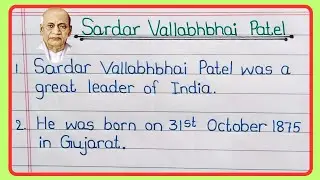 Sardar Vallabhbhai Patel
1. Sardar Vallabhbhai Patel was a
great leader of India.
2. He was born on 31st October 1875
in Gujarat.